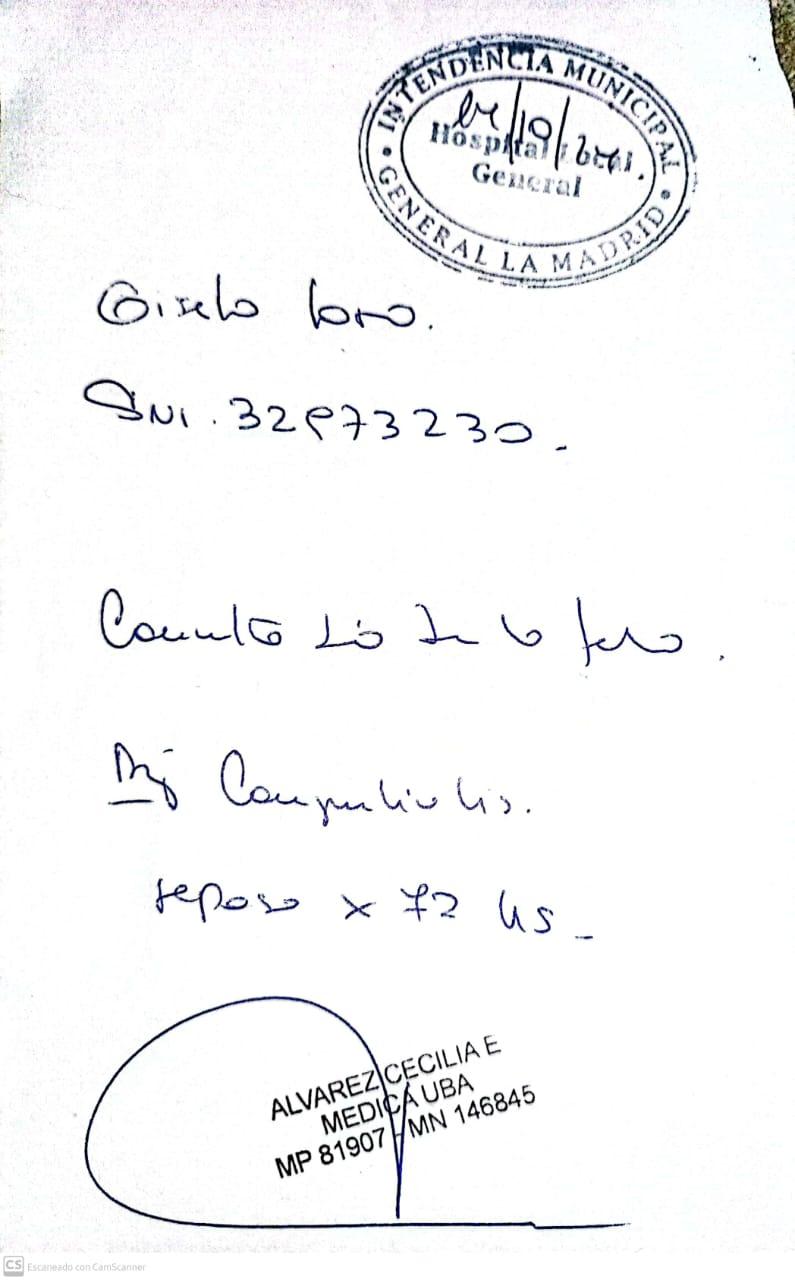 INTENDENCIA MUNICIPAL
Hospital
General
GENERAL LA MADRID
Gisela
DNI. 32973230.
Consulta
Conjuntivitis.
reposo x 72 hs
ALVAREZ CECILIA E
MEDICA UBA
MP 81907 MN 146845
CS Escaneado con CamScanner